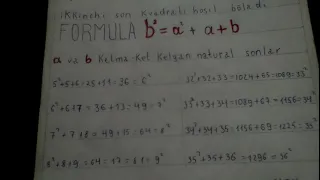 ikkinchi son kvadrati hosil bo'ladi
FORMULA b² = a² + a + b
a va b Ketma Ket kelgan natural sonlar
5²+5+6=25+11=36=6²
32²+32+33=1024+65=1089=33²
6²+6+7=36+13=49=7²
33²+33+34=1089+67=1156=34²
7²+7+8=49+15=64=8²
34²+34+35=1156+69=1225=35²
8²+8+9=64+17=81=9²
35²+35+36=1296=36²